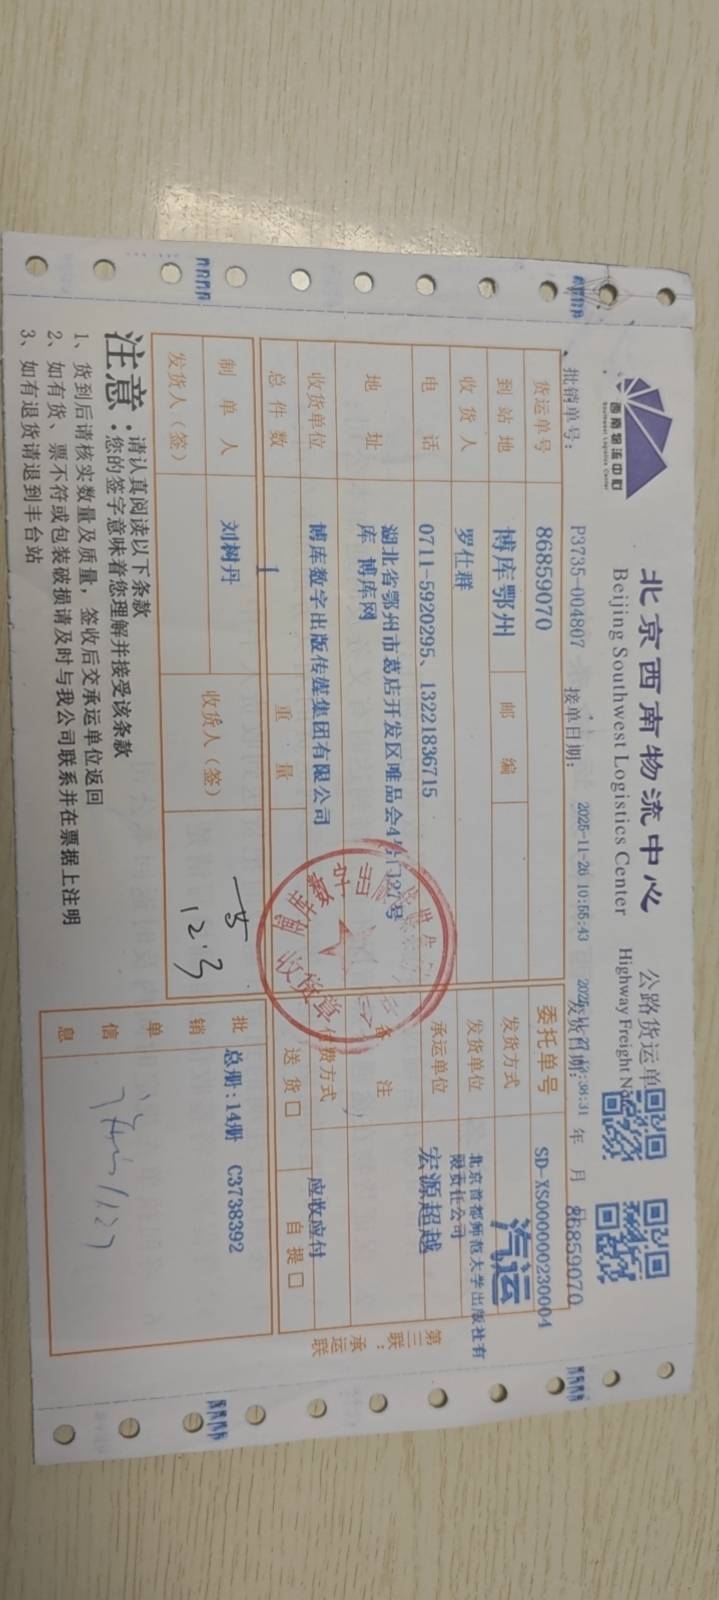 西南物流中心
Southwest Logistics Center
北京西南物流中心 公路货运单
Beijing Southwest Logistics Center Highway Freight
批销单号： P3735-004807 接单日期： 2025-11-26 10:55:43 发货日期： 年 月
86859070
货运单号 86859070 委托单号 SD-XS000000230004
到站地 博库鄂州 邮编 发货方式 汽运
收货人 罗仕群 发货单位 北京首都师范大学出版社有限责任公司
电话 0711-5920295、13221836715 承运单位 宏源超越
地址 湖北省鄂州市葛店开发区唯品会4号门27号
库 博库网
备注
收货单位 博库数字出版传媒集团有限公司 付费方式 应收应付
总件数 1 重量 送货□ 自提□
制单人 刘树丹 收货人（签）
发货人（签）
12.3
批销单信息 总册：14册 C3738392
第三联：承运联
注意：请认真阅读以下条款
您的签字意味着您理解并接受该条款
1、货到后请核实数量及质量，签收后交承运单位返回
2、如有货、票不符或包装破损请及时与我公司联系并在票据上注明
3、如有退货请退到丰台站
收货章